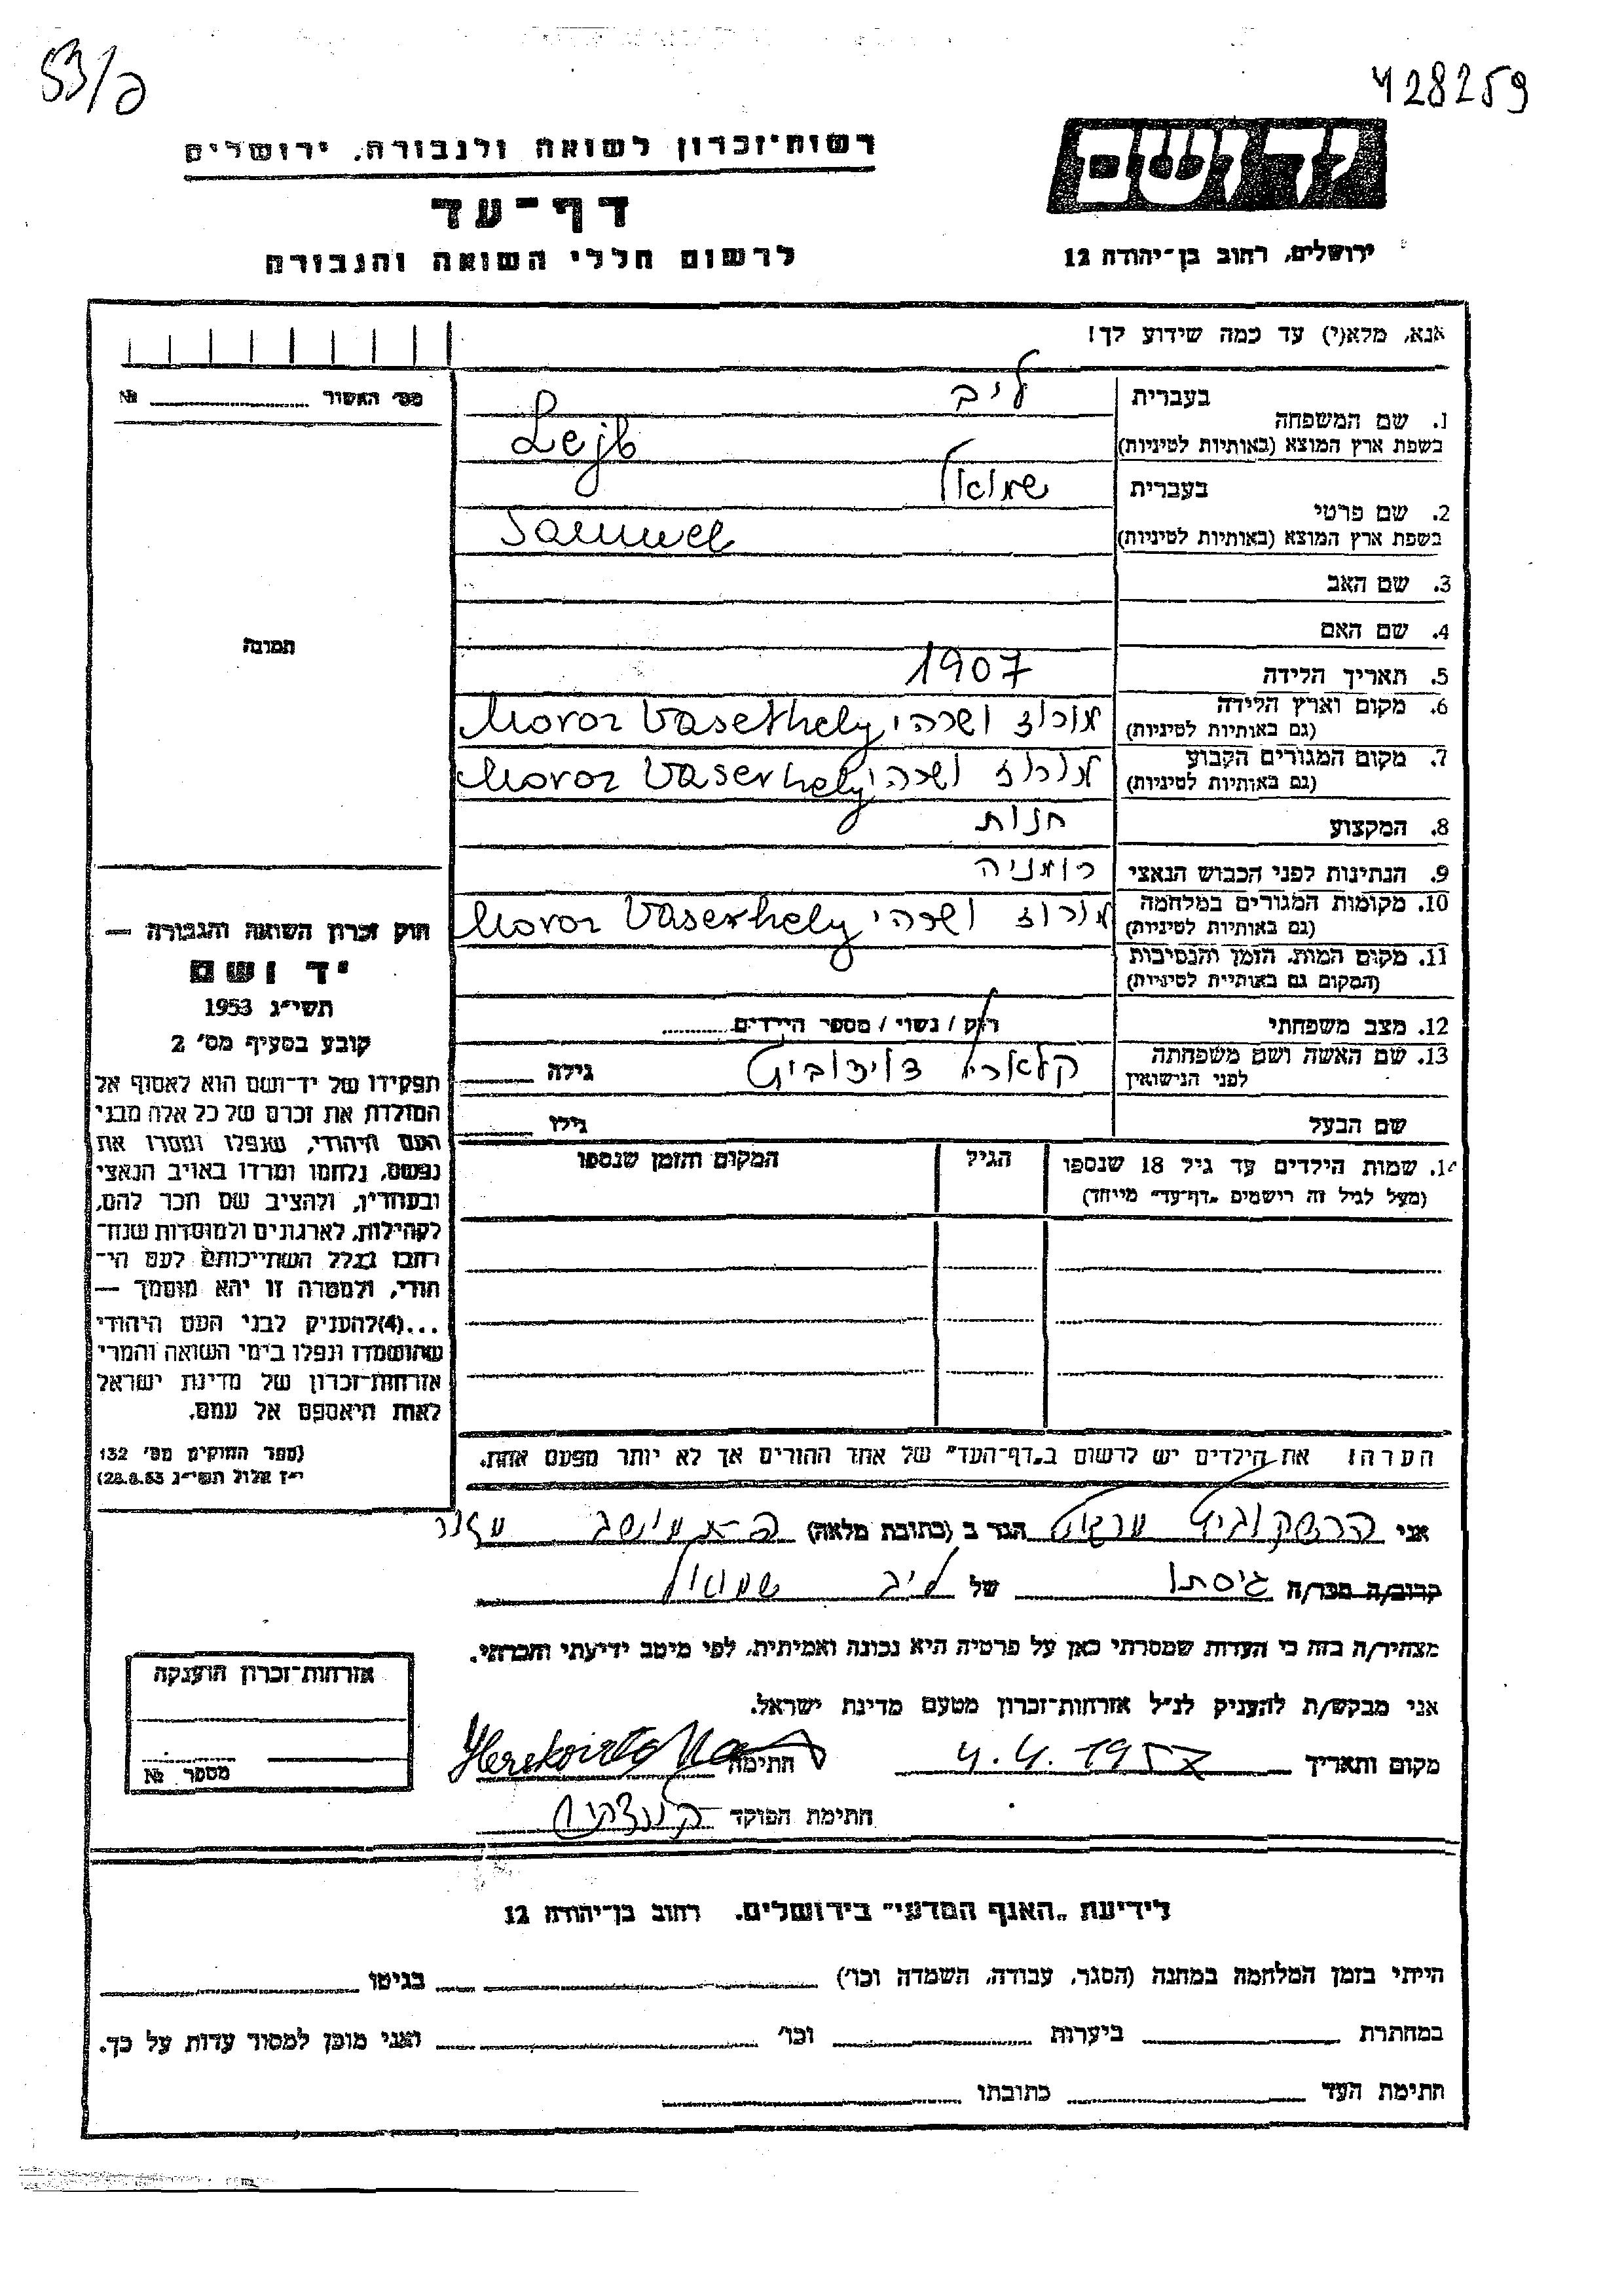 53/ם
428259
רשות־זכרון לשואה ולגבורה, ירושלים
דף־עד
לרשום חללי השואה והגבורה
יד ושם
ירושלים, רחוב בן־יהודה 12
אנא, מלא(י) עד כמה שידוע לך!
מס׳ האשור № ............
תמונה
1. שם המשפחה
בעברית ליב
בשפת ארץ המוצא (באותיות לטיניות) Lejb
2. שם פרטי
בעברית שמואל
בשפת ארץ המוצא (באותיות לטיניות) Samuel
3. שם האב
4. שם האם
5. תאריך הלידה 1907
6. מקום וארץ הלידה
(גם באותיות לטיניות) מורוז ושרהי Moroz Vaserhely
7. מקום המגורים הקבוע
(גם באותיות לטיניות) מורוז ושרהי Moroz Vaserhely
8. המקצוע חנות
9. הנתינות לפני הכבוש הנאצי רומניה
10. מקומות המגורים במלחמה
(גם באותיות לטיניות) מורוז ושרהי Moroz Vaserhely
11. מקום המות, הזמן והנסיבות
(המקום גם באותיות לטיניות)
12. מצב משפחתי רווק / נשוי / מספר הילדים.........
13. שם האשה ושם משפחתה
לפני הנישואין קלארה דוידוביץ גילה
שם הבעל גילו
14. שמות הילדים עד גיל 18 שנספו הגיל המקום והזמן שנספו
(מעל לגיל זה רישמים "דף־עד" מייחד)
הערה: את הילדים יש לרשום ב"דף־העד" של אחד ההורים אך לא יותר מפעם אחת.
חוק זכרון השואה והגבורה —
יד ושם
תשי״ג 1953
קובע בסעיף מס׳ 2
תפקידו של יד־ושם הוא לאסוף אל
המולדת את זכרם של כל אלה מבני
העם היהודי, שנפלו ומסרו את
נפשם, נלחמו ומרדו באויב הנאצי
ובעוזריו, ולהציב שם וזכר להם,
לקהילות, לארגונים ולמוסדות שנח־
רבו בגלל השתייכותם לעם הי־
הודי, ולמטרה זו יהא מוסמך —
...(4)להעניק לבני העם היהודי
שהושמדו ונפלו בימי השואה והמרי
אזרחות־זכרון של מדינת ישראל
לאות היאספם אל עמם.
(ספר החוקים מס׳ 132
י״ז אלול תשי״ג 28.8.53)
אני הרשקוביץ הגר ב (כתובת מלאה) עזור
קרוב/ה מכר/ה גיסתו של ליב שמואל
מצהיר/ה בזה כי העדות שמסרתי כאן על פרטיה היא נכונה ואמיתית, לפי מיטב ידיעתי והכרתי.
אני מבקש/ת להעניק לנ״ל אזרחות־זכרון מטעם מדינת ישראל.
מקום ותאריך 4.4.1957 חתימה
חתימת הפוקד
אזרחות־זכרון הוענקה
מספר №
לידיעת "האגף המדעי" בירושלים, רחוב בן־יהודה 12
הייתי בזמן המלחמה במחנה (הסגר, עבודה, השמדה וכו׳) בגיטו
במחתרת ביערות וכו׳ ואני מוכן למסור עדות על כך.
חתימת העד כתובתו